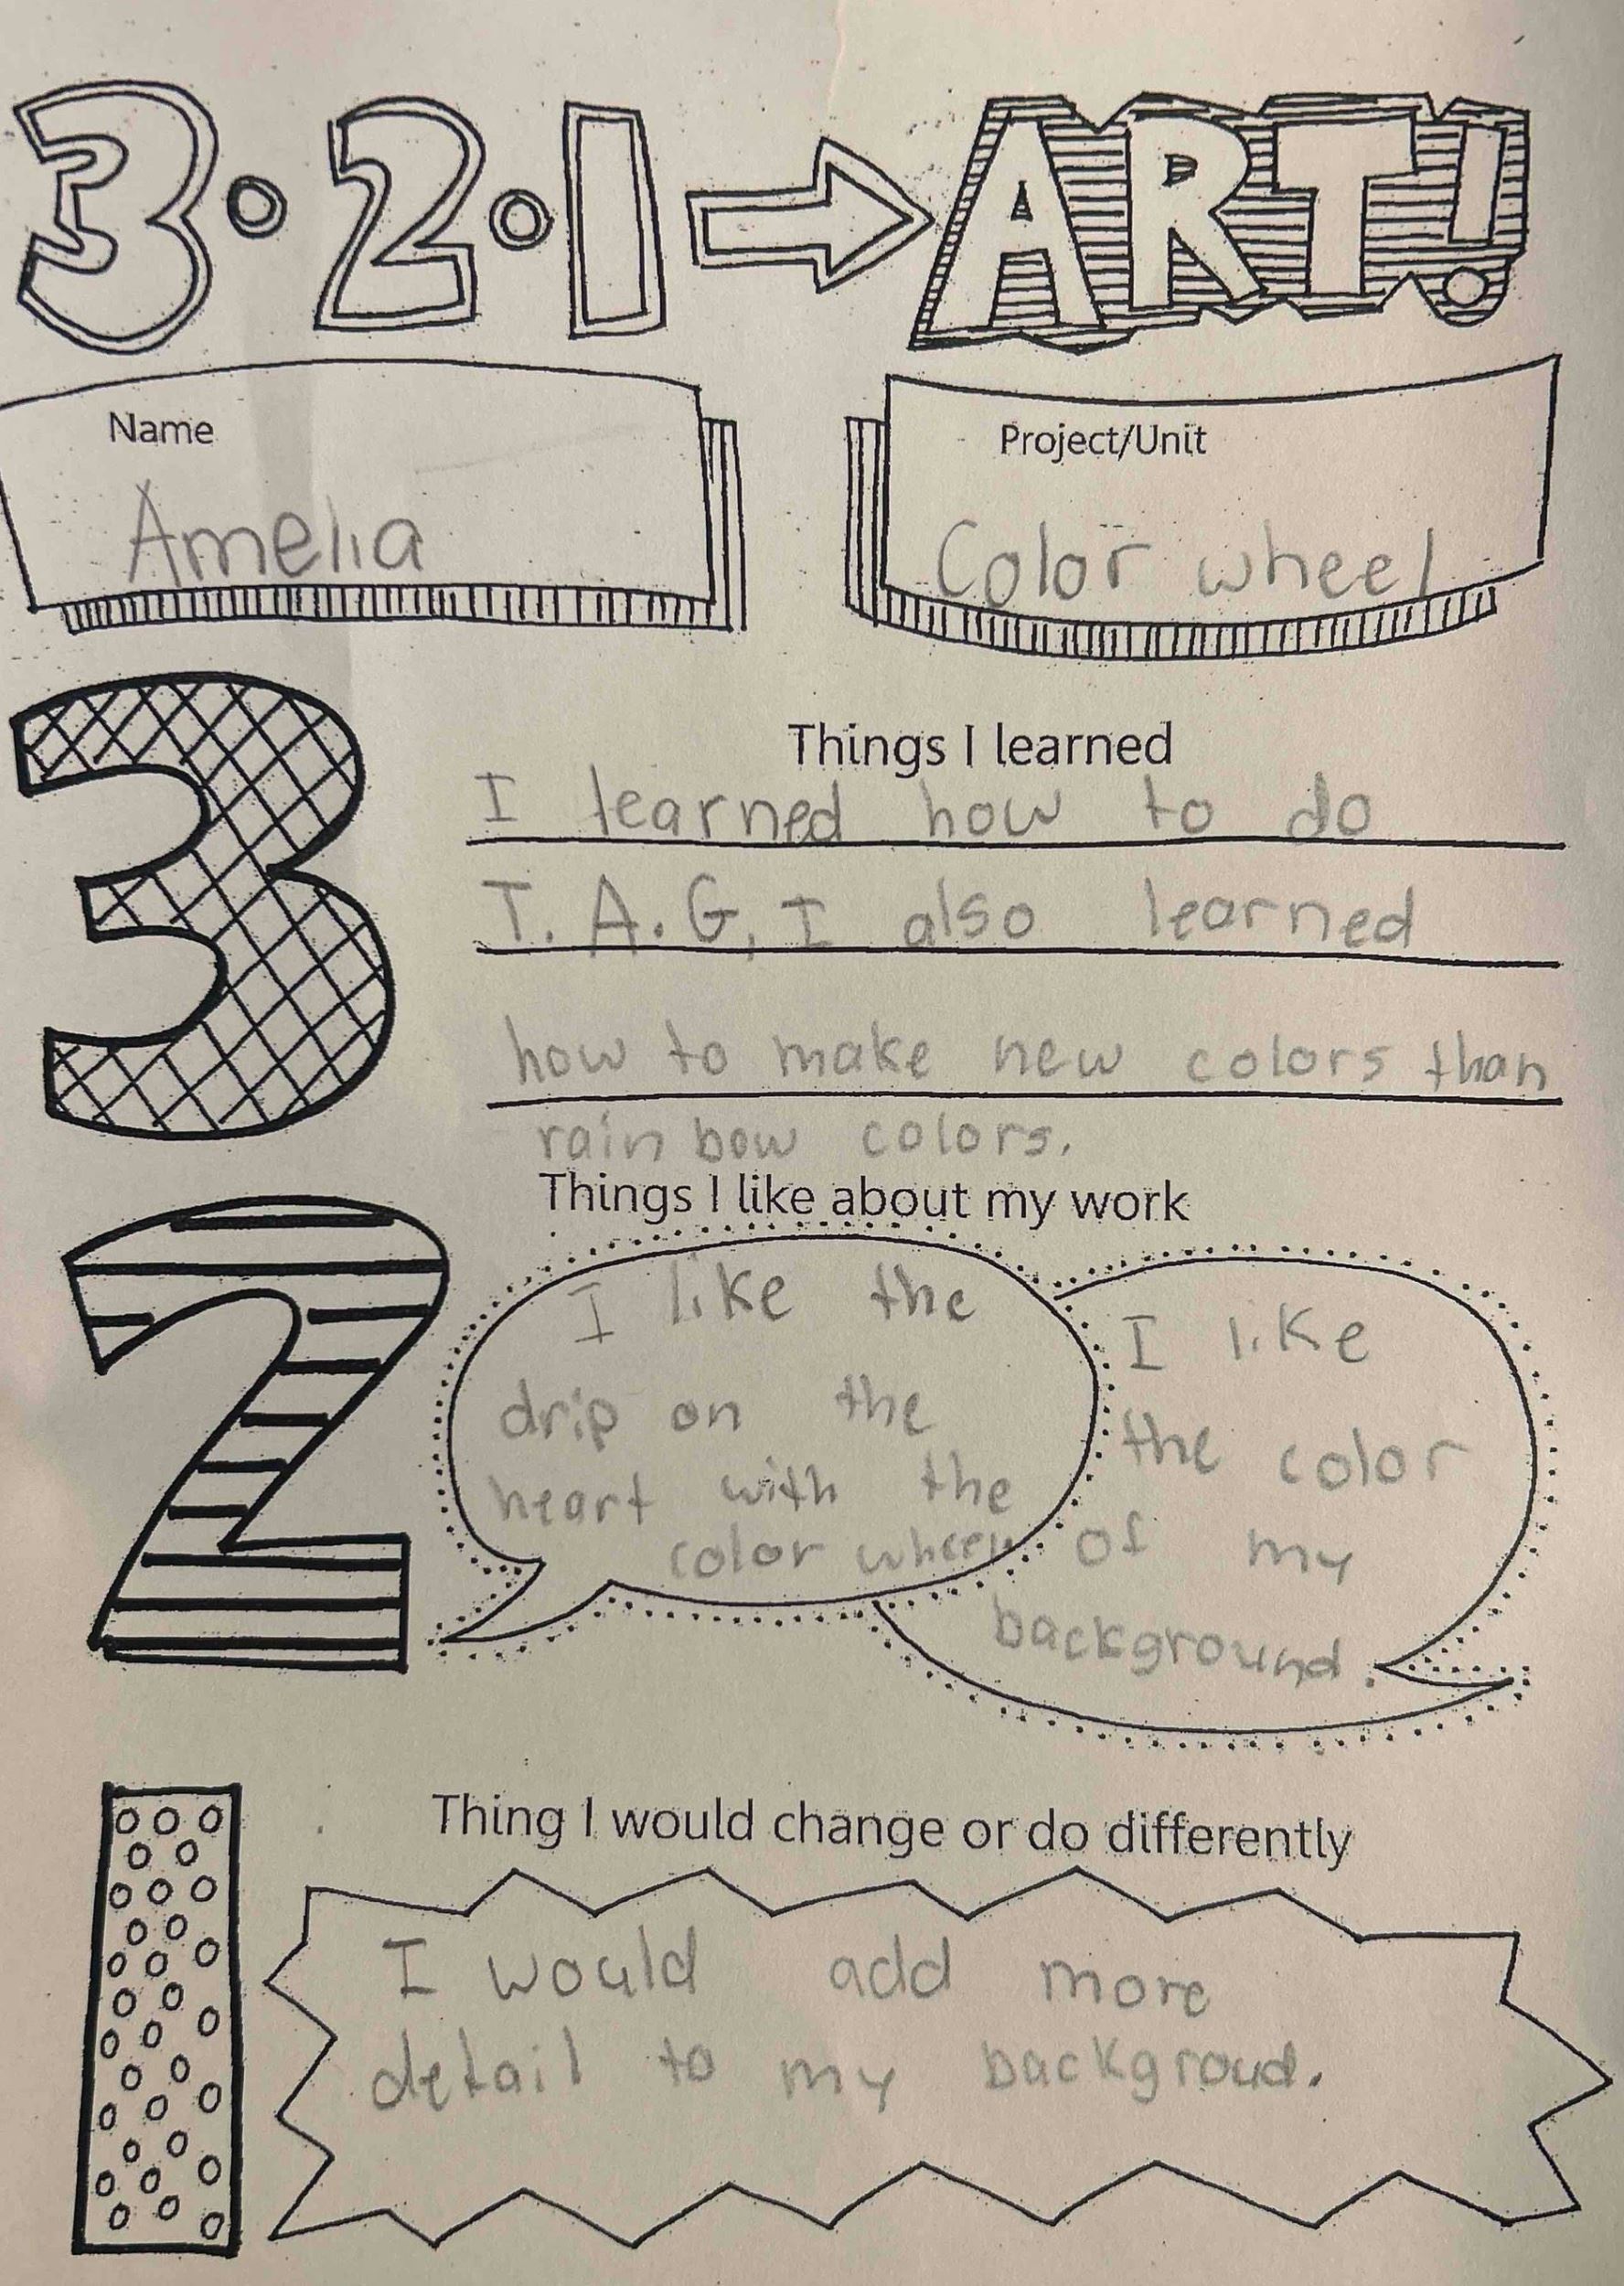 3·2·1→ART!
Name
Amelia
Project/Unit
Color wheel
3
Things I learned
I learned how to do
T.A.G, I also learned
how to make new colors than
rain bow colors.
2
Things I like about my work
I like the
drip on the
heart with the
color wheel
I like
the color
of my
background.
1
Thing I would change or do differently
I would add more
detail to my backgroud.